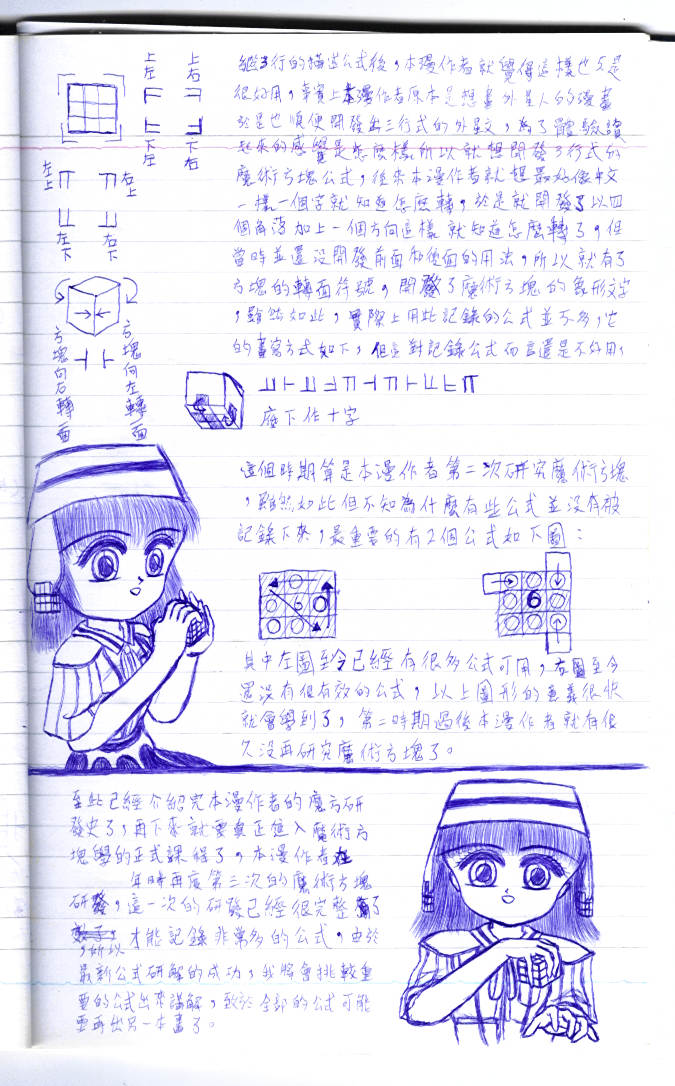 上左
上右
下左
下右
左上
右上
左下
右下
方塊向右轉面
方塊向左轉面
繼3行的描述公式後，本漫作者就覺得這樣也不是
很好用，事實上本漫作者原本是想畫外星人的漫畫
於是也順便開發出三行式的外星文，為了體驗讀
起來的感覺是怎麼樣所以就想開發3行式的
魔術方塊公式，後來本漫作者就想最好像中文
一樣一個字就知道怎麼轉，於是就開發了以四
個角落加上一個方向這樣就知道怎麼轉了，但
當時並還沒開發前面和後面的用法，所以就有了
方塊的轉面符號，開發了魔術方塊的象形文字
，雖然如此，實際上用此記錄的公式並不多，它
的書寫方式如下，但這對記錄公式而言還是不好用，
底下作十字
這個時期算是本漫作者第二次研究魔術方塊
，雖然如此但不知為什麼有些公式並沒有被
記錄下來，最重要的有2個公式如下圖：
6
6
其中左圖至今已經有很多公式可用，右圖至今
還沒有很有效的公式，以上圖形的意義很快
就會學到了，第二時期過後本漫作者就有很
久沒再研究魔術方塊了。
至此已經介紹完本漫作者的魔方研
發史了，再下來就要真正進入魔術方
塊學的正式課程了，本漫作者在
年時再度第三次的魔術方塊
研發，這一次的研發已經很完整了
，所以才能記錄非常多的公式，由於
最新公式研解的成功，我將會挑較重
要的公式出來講解，致於全部的公式可能
要再出另一本書了。